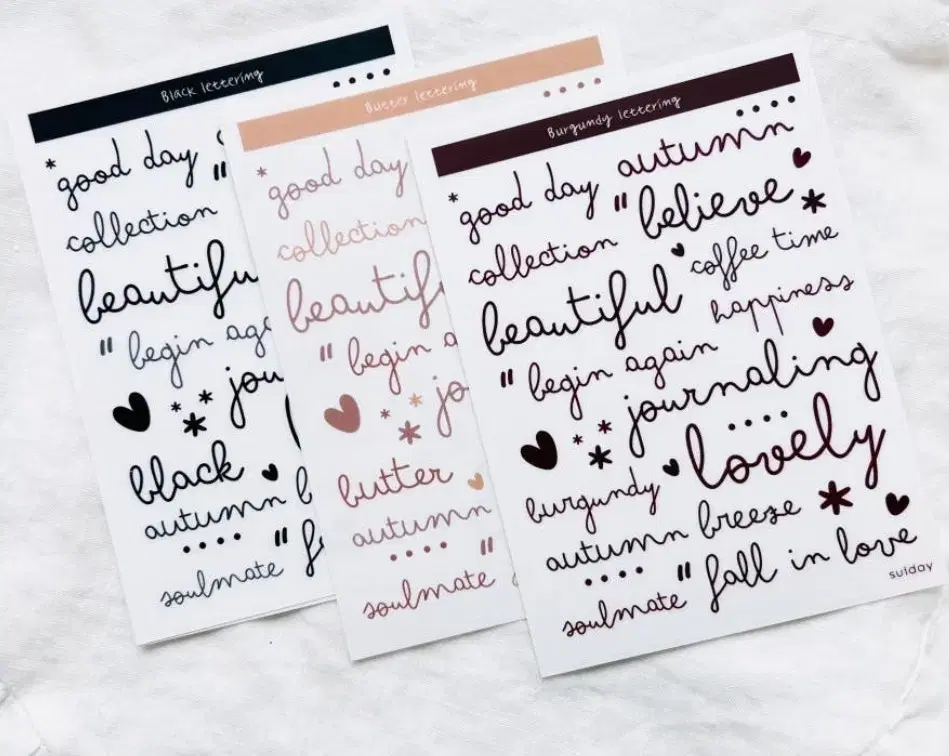 Black lettering
good day
collection
beautifu
begin aga
jou
black
autumn b
soulmate
Butter lettering
good day
collection
beautif
begin a
jo
butter
autumn
soulmate
Burgundy lettering
good day autumn
collection believe
beautiful coffee time
happiness
begin again
journaling
lovely
burgundy
autumn breeze
soulmate fall in love
suiday